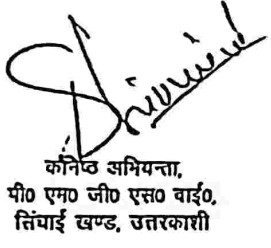 कनिष्ठ अभियन्ता,
पी0 एम0 जी0 एस0 वाई0,
सिंचाई खण्ड, उत्तरकाशी